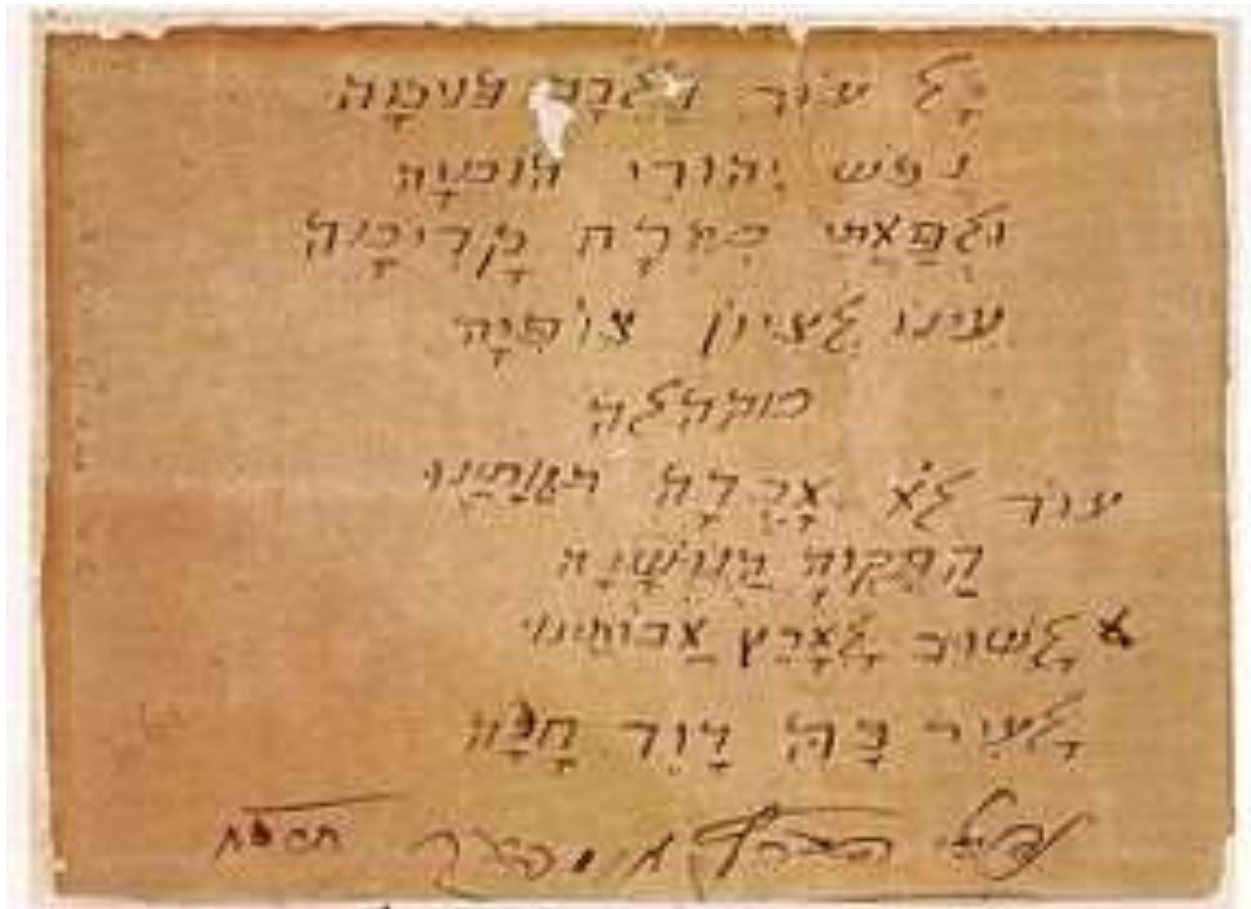 כָּל עוֹד בַּלֵּבָב פנימָה
נֶפש יְהודי הומיָה
וּלְפַאֲתֵי מִזְרָח קָדִימָה
עינו לְציון צוֹפִיָּה
מוקהלה
עוד לֹא אָבְדָה תִּקְוָתֵנוּ
הַתִּקְוָה הַנּוֹשָׁנָה
לָשׁוּב לְאֶרֶץ אֲבוֹתֵינוּ
לָעִיר בָּהּ דָּוִד חָנָה